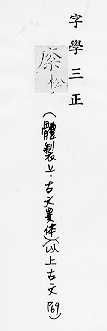 字學三正
(體製上·古文異体)以上古文 P69